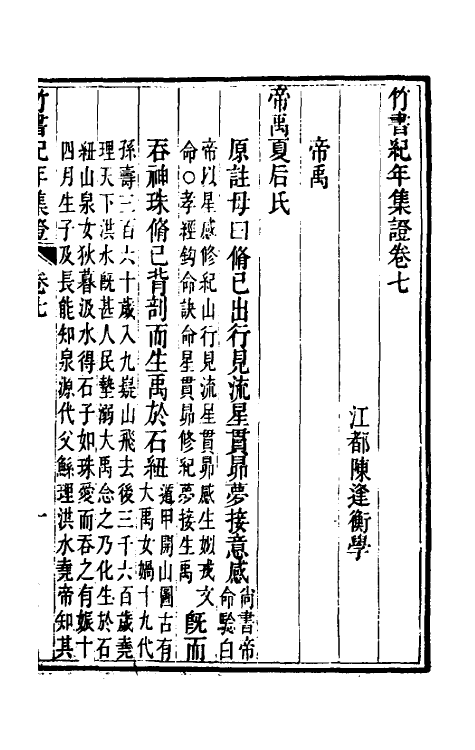 竹書紀年集證卷七
江都陳逢衡學
帝禹
帝禹夏后氏
原註母曰脩己出行見流星貫昴夢接意感尚書帝命驗白
帝以星感修紀山行見流星貫昴感生姒戎文命○孝經鈎命訣命星貫昴修紀夢接生禹旣而
吞神珠脩己背剖而生禹於石紐遁甲開山圖古有大禹女媧十九代
孫壽三百六十歲入九嶷山飛去後三千六百歲堯
理天下洪水旣甚人民墊溺大禹念之乃化生於石
紐山泉女狄暮汲水得石子如珠愛而吞之有娠十
四月生子及長能知泉源代父鯀理洪水堯帝知其
竹書紀年集證 卷七 一